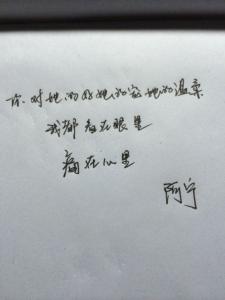 你对她的好她的宠她的温柔
我都看在眼里
痛在心里
阿宁